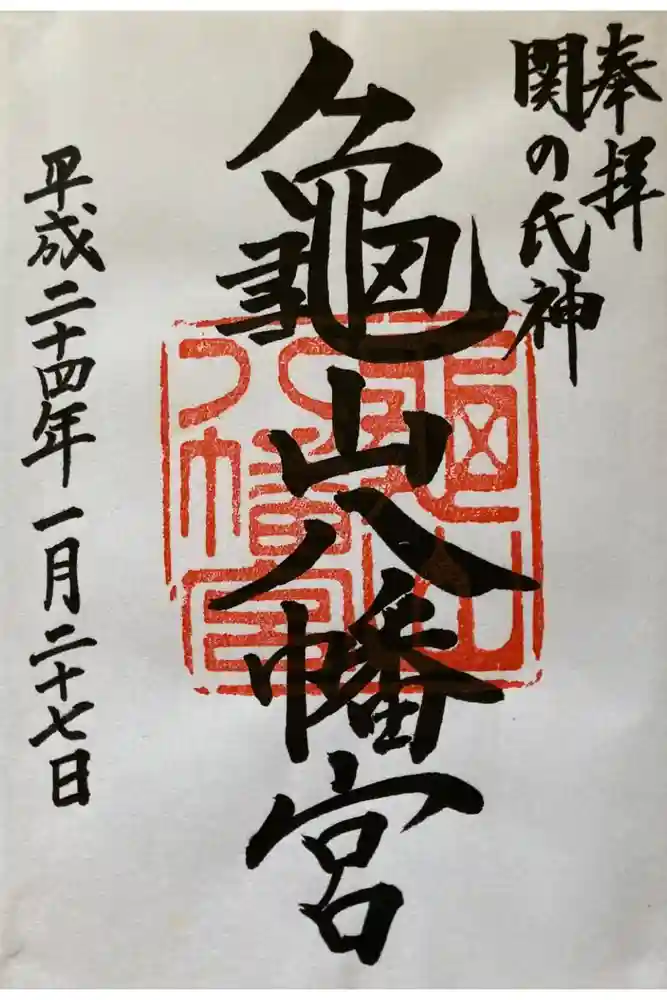 奉拝
関の氏神
龜山八幡宮
平成二十四年一月二十七日
龜山八幡宮